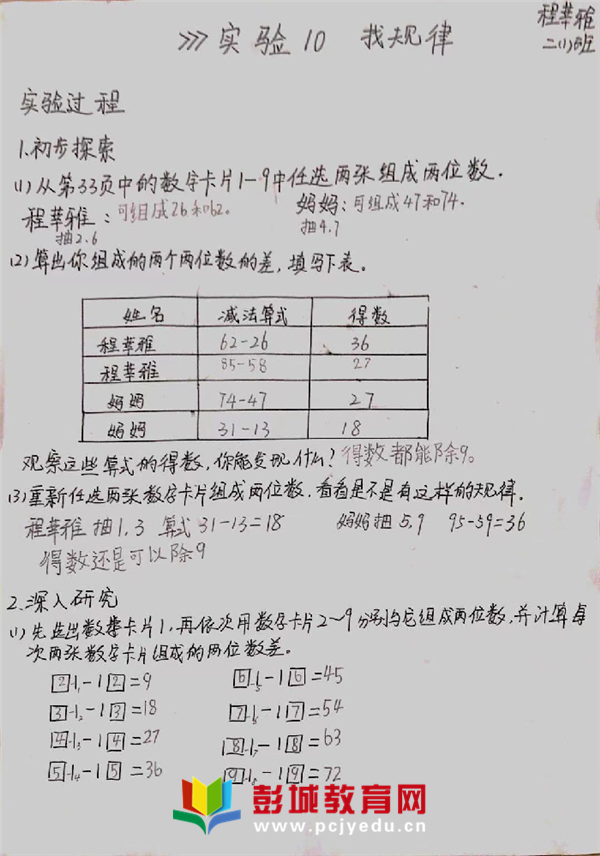 >>> 实验10 找规律
程莘雅
二(1)班
实验过程
1.初步探索
(1)从第33页中的数字卡片1-9中任选两张组成两位数.
程莘雅：可组成26和62。 妈妈：可组成47和74.
抽2.6 抽4.7
(2)算出你组成的两个两位数的差，填写下表。
姓名 减法算式 得数
程莘雅 62-26 36
程莘雅 85-58 27
妈妈 74-47 27
妈妈 31-13 18
观察这些算式的得数，你能发现什么？得数都能除9。
(3)重新任选两张数字卡片组成两位数，看看是不是有这样的规律。
程莘雅抽1.3 算式31-13=18 妈妈抽5.9 95-59=36
得数还是可以除9
2.深入研究
(1)先选出数字卡片1，再依次用数字卡片2~9分别与它组成两位数，并计算每
次两张数字卡片组成的两位数差。
21-12=9 61-16=45
31-13=18 71-17=54
41-14=27 81-18=63
51-15=36 91-19=72
彭城教育网
www.pcjyedu.cn